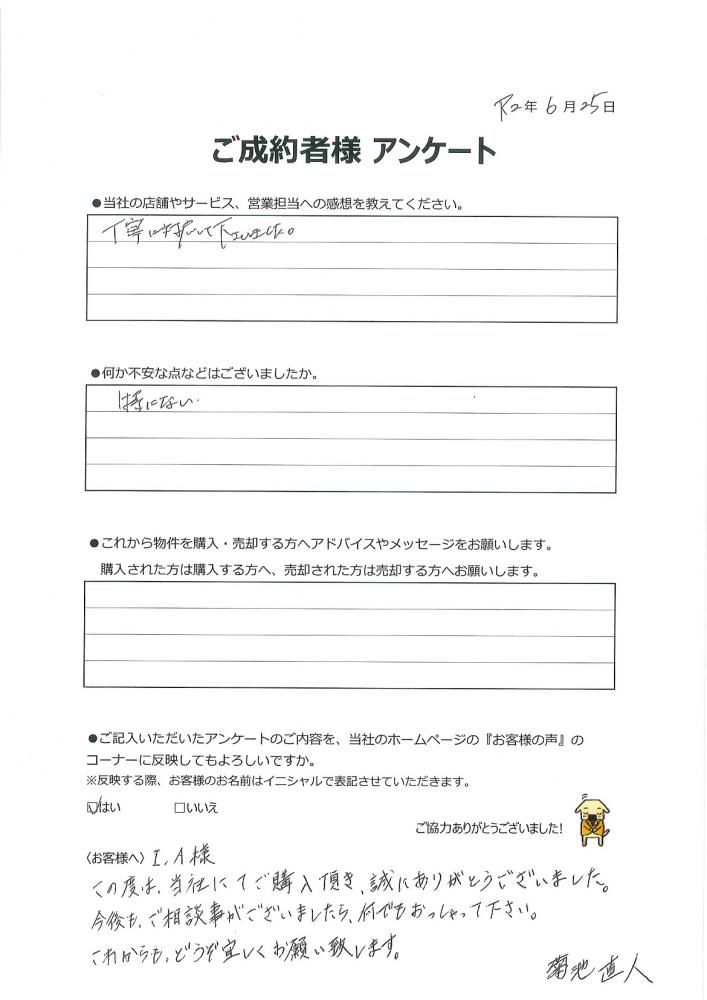 R2年 6月25日
ご成約者様 アンケート
●当社の店舗やサービス、営業担当への感想を教えてください。
丁寧に対応して下さいました。
●何か不安な点などはございましたか。
特にない.
●これから物件を購入・売却する方へアドバイスやメッセージをお願いします。
購入された方は購入する方へ、売却された方は売却する方へお願いします。
●ご記入いただいたアンケートのご内容を、当社のホームページの『お客様の声』の
コーナーに反映してもよろしいですか。
※反映する際、お客様のお名前はイニシャルで表記させていただきます。
☑はい □いいえ
ご協力ありがとうございました!
〈お客様へ〉 I.A様
この度は、当社にてご購入頂き、誠にありがとうございました。
今後も、ご相談事がございましたら、何でもおっしゃって下さい。
これからも、どうぞ宜しくお願い致します。
菊池 直人